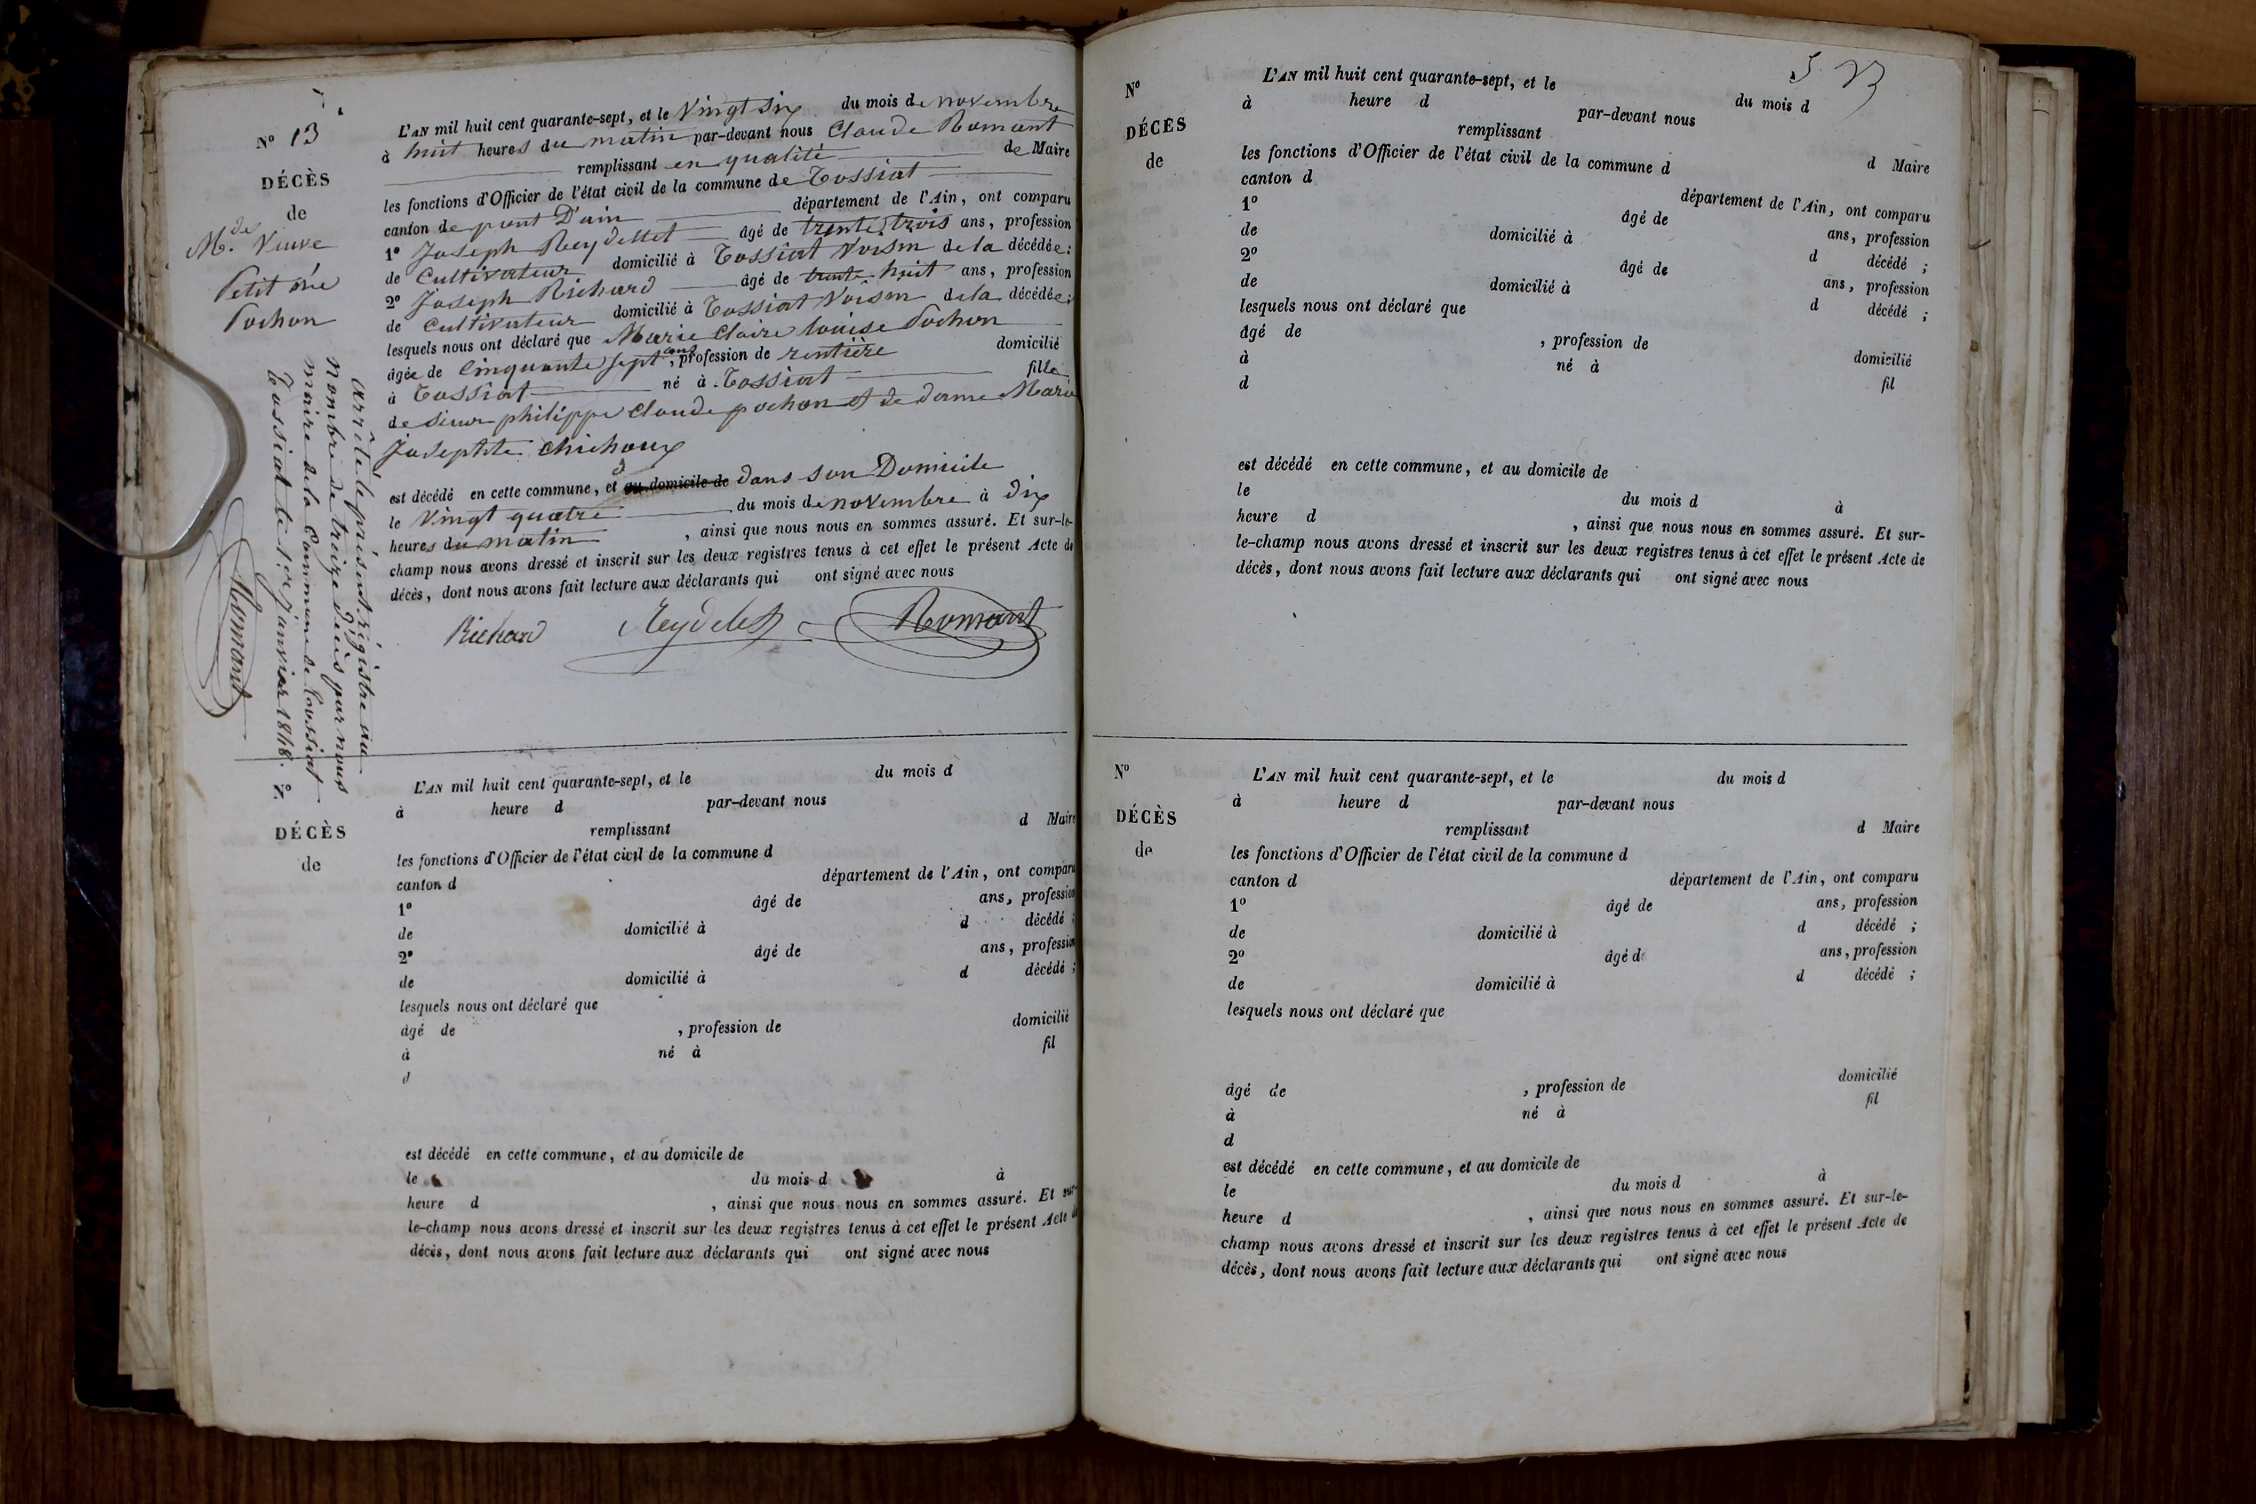 N° 13
DÉCÈS
de
M.de Veuve
Petit née
Pochon
L'AN mil huit cent quarante-sept, et le vingt six du mois de novembre
à huit heures du matin par-devant nous Claude Romant
remplissant en qualité de Maire
les fonctions d'Officier de l'état civil de la commune de Tossiat
canton de pont D'ain département de l'Ain, ont comparu
1° Joseph Reydellet âgé de trente trois ans, profession
de Cultivateur domicilié à Tossiat Voisin de la décédée ;
2° Joseph Richard âgé de trente huit ans, profession
de Cultivateur domicilié à Tossiat Voisin de la décédée ;
lesquels nous ont déclaré que Marie Claire louise Pochon
âgée de Cinquante sept ans, profession de rentière domicilié
à Tossiat né à Tossiat fille
de sieur philippe Claude pochon et de dame Marie
Josephte Chichoux
est décédé en cette commune, et au domicile de dans son Domicile
le vingt quatre du mois de novembre à dix
heures du matin , ainsi que nous nous en sommes assuré. Et sur-le-
champ nous avons dressé et inscrit sur les deux registres tenus à cet effet le présent Acte de
décès, dont nous avons fait lecture aux déclarants qui ont signé avec nous
Richard Reydellet Romant
arrêté le présent régistre au
Nombre de treize décès par nous
maire de la Commune de Tossiat
Tossiat le 1er janvier 1848.
Romant
N°
DÉCÈS
de
L'AN mil huit cent quarante-sept, et le du mois d
à heure d par-devant nous
remplissant d Maire
les fonctions d'Officier de l'état civil de la commune d
canton d département de l'Ain, ont comparu
1° âgé de ans, profession
de domicilié à d décédé ;
2° âgé de ans, profession
de domicilié à d décédé ;
lesquels nous ont déclaré que
âgé de , profession de domicilié
à né à fil
d
est décédé en cette commune, et au domicile de
le du mois d à
heure d , ainsi que nous nous en sommes assuré. Et sur-
le-champ nous avons dressé et inscrit sur les deux registres tenus à cet effet le présent Acte de
décès, dont nous avons fait lecture aux déclarants qui ont signé avec nous
N°
DÉCÈS
de
L'AN mil huit cent quarante-sept, et le du mois d
à heure d par-devant nous
remplissant d Maire
les fonctions d'Officier de l'état civil de la commune d
canton d département de l'Ain, ont comparu
1° âgé de ans, profession
de domicilié à d décédé ;
2° âgé de ans, profession
de domicilié à d décédé ;
lesquels nous ont déclaré que
âgé de , profession de domicilié
à né à fil
d
est décédé en cette commune, et au domicile de
le du mois d à
heure d , ainsi que nous nous en sommes assuré. Et sur-
le-champ nous avons dressé et inscrit sur les deux registres tenus à cet effet le présent Acte de
décès, dont nous avons fait lecture aux déclarants qui ont signé avec nous
N°
DÉCÈS
de
L'AN mil huit cent quarante-sept, et le du mois d
à heure d par-devant nous
remplissant d Maire
les fonctions d'Officier de l'état civil de la commune d
canton d département de l'Ain, ont comparu
1° âgé de ans, profession
de domicilié à d décédé ;
2° âgé d ans, profession
de domicilié à d décédé ;
lesquels nous ont déclaré que
âgé de , profession de domicilié
à né à fil
d
est décédé en cette commune, et au domicile de
le du mois d à
heure d , ainsi que nous nous en sommes assuré. Et sur-le-
champ nous avons dressé et inscrit sur les deux registres tenus à cet effet le présent Acte de
décès, dont nous avons fait lecture aux déclarants qui ont signé avec nous